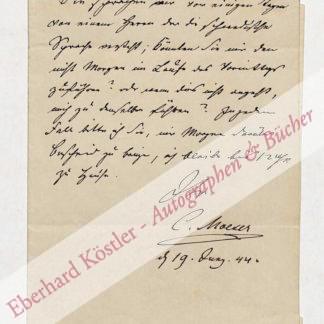 Sie sprachen mir vor einigen Tagen
von einem Herrn der die schwedische
Sprache versteht; könnten Sie mir den
nicht Morgen im Laufe des Vormittags
zuführen? oder wenn dies nicht angeht,
mich zu demselben führen? In jedem
Fall bitte ich Sie, mir Morgen
Bescheid zu sagen, ich bleibe bis 12 Uhr
zu Hause.
C. Moeser
19. 44.
Eberhard Köstler - Autographen & Bücher